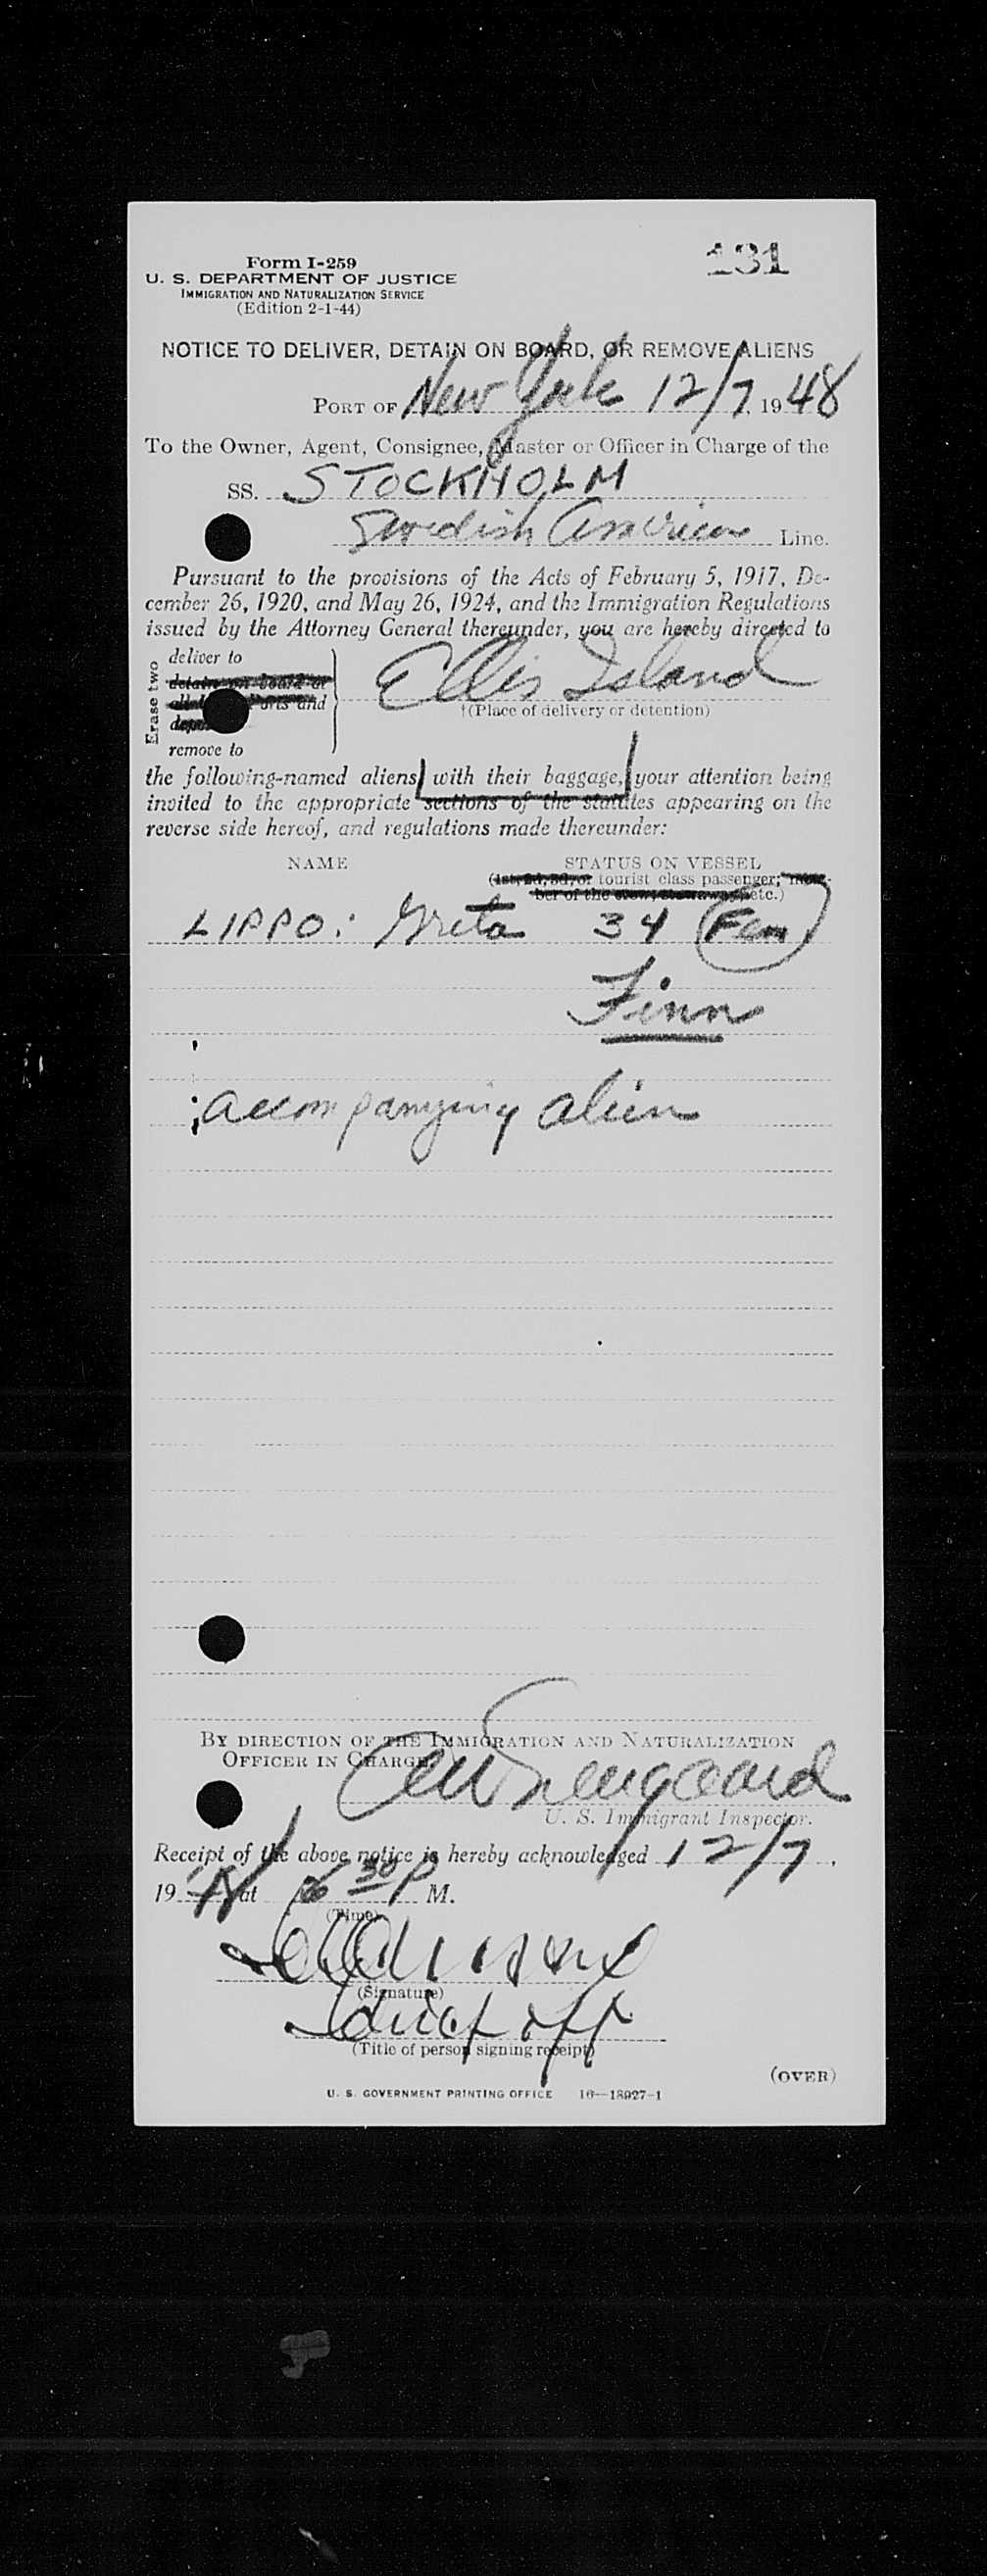 131
Form I-259
U. S. DEPARTMENT OF JUSTICE
IMMIGRATION AND NATURALIZATION SERVICE
(Edition 2-1-44)
NOTICE TO DELIVER, DETAIN ON BOARD, OR REMOVE ALIENS
PORT OF New York 12/7, 1948
To the Owner, Agent, Consignee, Master or Officer in Charge of the
SS. STOCKHOLM
Swedish American Line.
Pursuant to the provisions of the Acts of February 5, 1917, De-
cember 26, 1920, and May 26, 1924, and the Immigration Regulations
issued by the Attorney General thereunder, you are hereby directed to
Erase two
deliver to
detain on board or
and
remove to
Ellis Island
†(Place of delivery or detention)
the following-named aliens, with their baggage, your attention being
invited to the appropriate sections of the statutes appearing on the
reverse side hereof, and regulations made thereunder:
NAME STATUS ON VESSEL
(1st, 2d, 3d, or tourist class passenger; mem-
ber of the crew; stowaway; etc.)
LIPPO: Greta 34 Fem
Finn
accompanying alien
BY DIRECTION OF THE IMMIGRATION AND NATURALIZATION
OFFICER IN CHARGE
U. S. Immigrant Inspector.
Receipt of the above notice is hereby acknowledged 12/7,
19 at 30 P M.
(Time)
(Signature)
Chief off
(Title of person signing receipt)
(OVER)
U. S. GOVERNMENT PRINTING OFFICE 16—18927-1